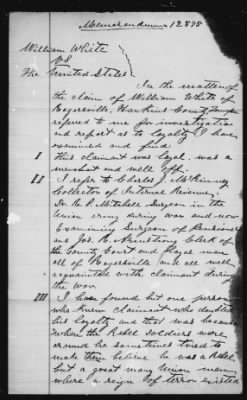 Memorandum 12898
William White
vs
The United States
In the matter of
the claim of William White of
Rogersville, Hawkins County Tenn
referred to me for investigation
and report as to loyalty I have
examined and find:
I This claimant was loyal. was a
merchant and well off.
II I refer to Charles J. McKinney
Collector of Internal Revenue,
Dr. R. P. Mitchell Surgeon in the
Union army during war and now
Examining Surgeon of Pensioners
and Jas. R. Armstrong Clerk of
the County Court and loyal man
all of Rogersville and all well
acquainted with claimant during
the war.
III I have found but one person
who knew claimant who doubted
his loyalty and that was because
when the Rebel soldiers were
around he sometimes tried to
make them believe he was a Rebel
but a great many Union men
where a reign of terror existed